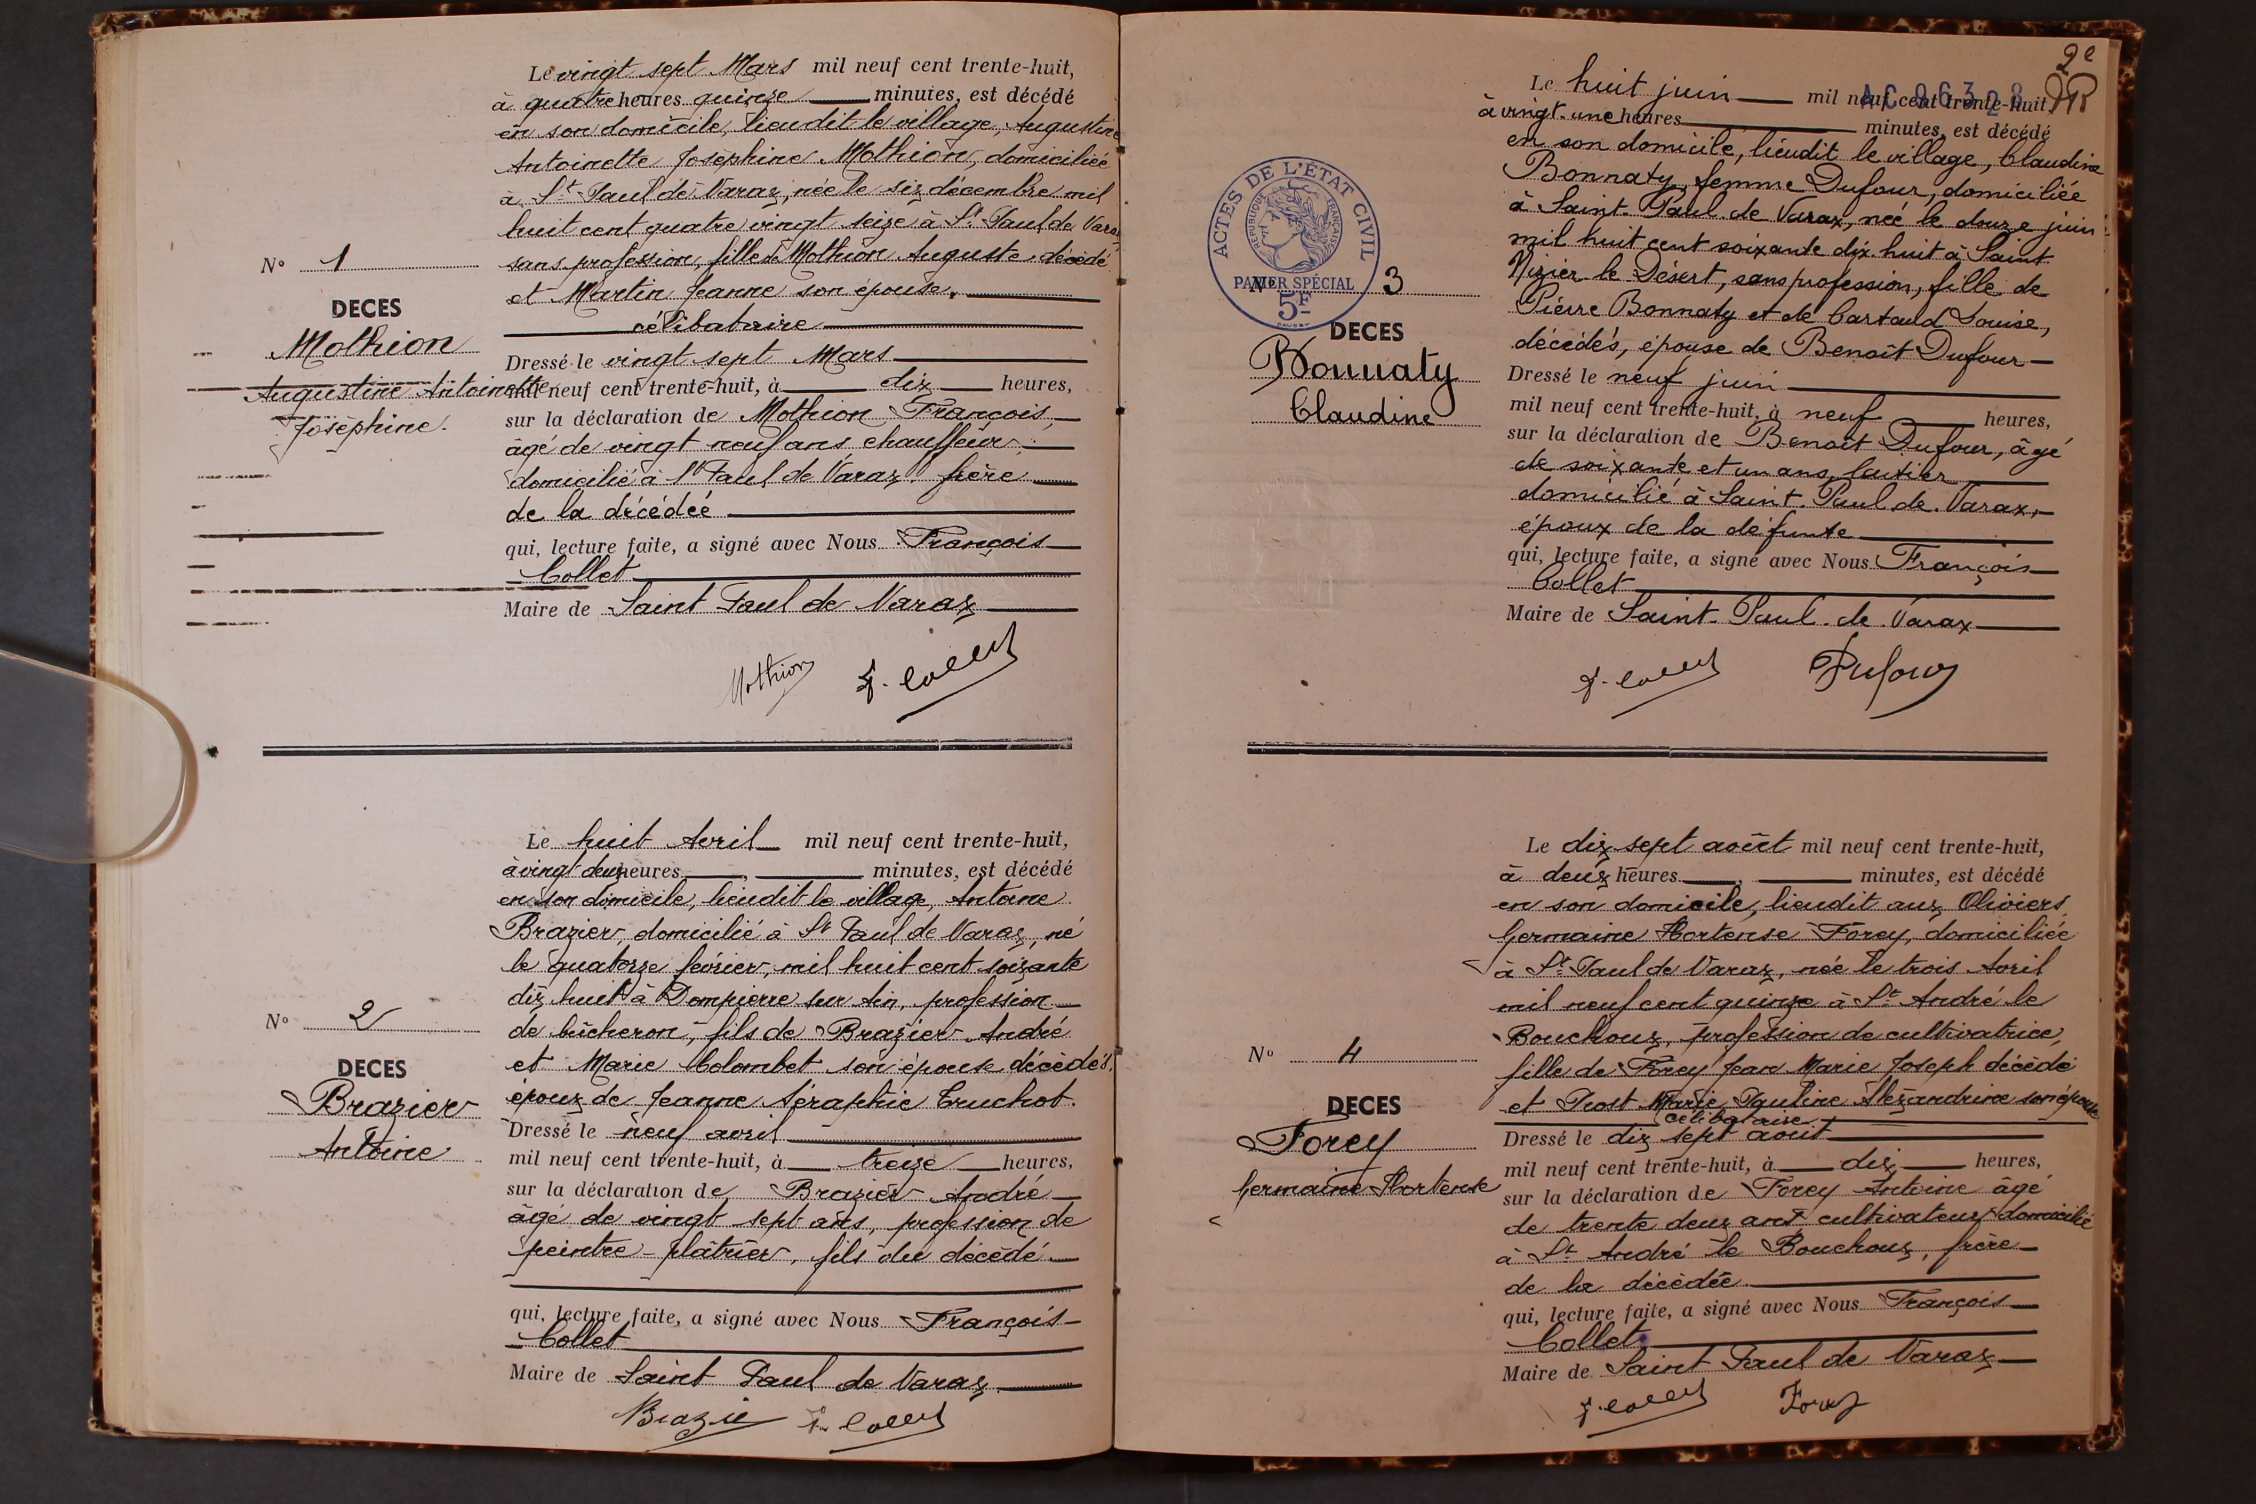 Le vingt sept Mars mil neuf cent trente-huit,
à quatre heures quinze minutes, est décédé
en son domicile, lieudit le village, Augustine
Antoinette Josèphine Mothion, domiciliée
à St Paul de Varax, née le six décembre mil
huit cent quatre vingt seize à St Paul de Varax
sans profession, fille de Mothion Auguste, décédé
et Martin Jeanne son épouse.
célibataire
N° 1
DECES
Mothion
Augustine Antoinette
Josèphine.
Dressé le vingt sept Mars
mil neuf cent trente-huit, à dix heures,
sur la déclaration de Mothion François,
âgé de vingt neuf ans, chauffeur,
domicilié à St Paul de Varax, frère
de la décédée
qui, lecture faite, a signé avec Nous François
Collet
Maire de Saint Paul de Varax
Mothion F. Collet
Le huit Avril mil neuf cent trente-huit,
à vingt deux heures minutes, est décédé
en son domicile, lieudit le village, Antoine
Brazier, domicilié à St Paul de Varax, né
le quatorze février, mil huit cent soixante
dix huit à Dompierre sur Ain, profession
de bûcheron, fils de Brazier André
et Marie Colombet son épouse décédés,
époux de Jeanne Séraphie Truchot.
N° 2
DECES
Brazier
Antoine
Dressé le neuf avril
mil neuf cent trente-huit, à treize heures,
sur la déclaration de Brazier André
âgé de vingt sept ans, profession de
peintre-plâtrier, fils du décédé
qui, lecture faite, a signé avec Nous François
Collet
Maire de Saint Paul de Varax
Brazie F. Collet
2e
AC 96328
Le huit juin mil neuf cent trente-huit
à vingt-une heures minutes, est décédé
en son domicile, lieudit le village, Claudine
Bonnaty, femme Dufour, domiciliée
à Saint-Paul-de-Varax, née le douze juin
mil huit cent soixante dix huit à Saint
Nizier le Désert, sans profession, fille de
Pierre Bonnaty et de Cartaud Louise,
décédés, épouse de Benoît Dufour
ACTES DE L'ÉTAT CIVIL
RÉPUBLIQUE FRANÇAISE
PAPIER SPÉCIAL
5F
N° 3
DECES
Bonnaty
Claudine
Dressé le neuf juin
mil neuf cent trente-huit, à neuf heures,
sur la déclaration de Benoît Dufour, âgé
de soixante et un ans,
domicilié à Saint-Paul-de-Varax,
époux de la défunte
qui, lecture faite, a signé avec Nous François
Collet
Maire de Saint-Paul-de-Varax
F. Collet Dufour
Le dix sept août mil neuf cent trente-huit,
à deux heures minutes, est décédé
en son domicile, lieudit aux Oliviers
Germaine Hortense Forey, domiciliée
à St Paul de Varax, née le trois Avril
mil neuf cent quinze à St André le
Bouchoux, profession de cultivatrice,
fille de Forey Jean Marie Joseph décédé
et Prost Marie Pauline Alexandrine son épouse
célibataire
N° 4
DECES
Forey
Germaine Hortense
Dressé le dix sept août
mil neuf cent trente-huit, à dix heures,
sur la déclaration de Forey Antoine âgé
de trente deux ans cultivateur domicilié
à St André le Bouchoux, frère
de la décédée
qui, lecture faite, a signé avec Nous François
Collet
Maire de Saint Paul de Varax
F. Collet Forey